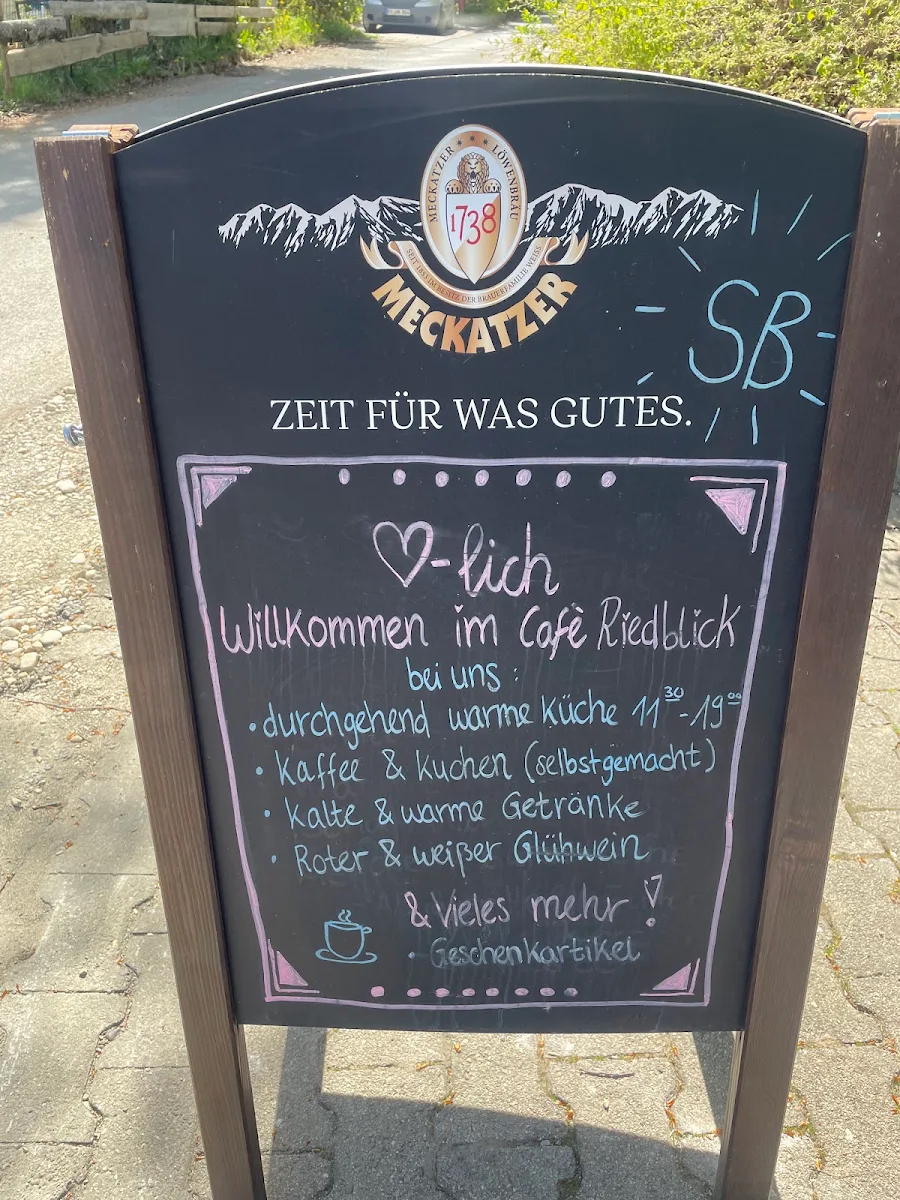 MECKATZER LÖWENBRÄU
1738
SEIT 1853 IM BESITZ DER BRAUERFAMILIE WEISS
MECKATZER
SB
ZEIT FÜR WAS GUTES.
♡-lich
Willkommen im Café Riedblick
bei uns :
• durchgehend warme Küche 11³⁰-19⁰⁰
• Kaffee & Kuchen (selbstgemacht)
• Kalte & warme Getränke
• Roter & weißer Glühwein
& Vieles mehr !
• Geschenkartikel